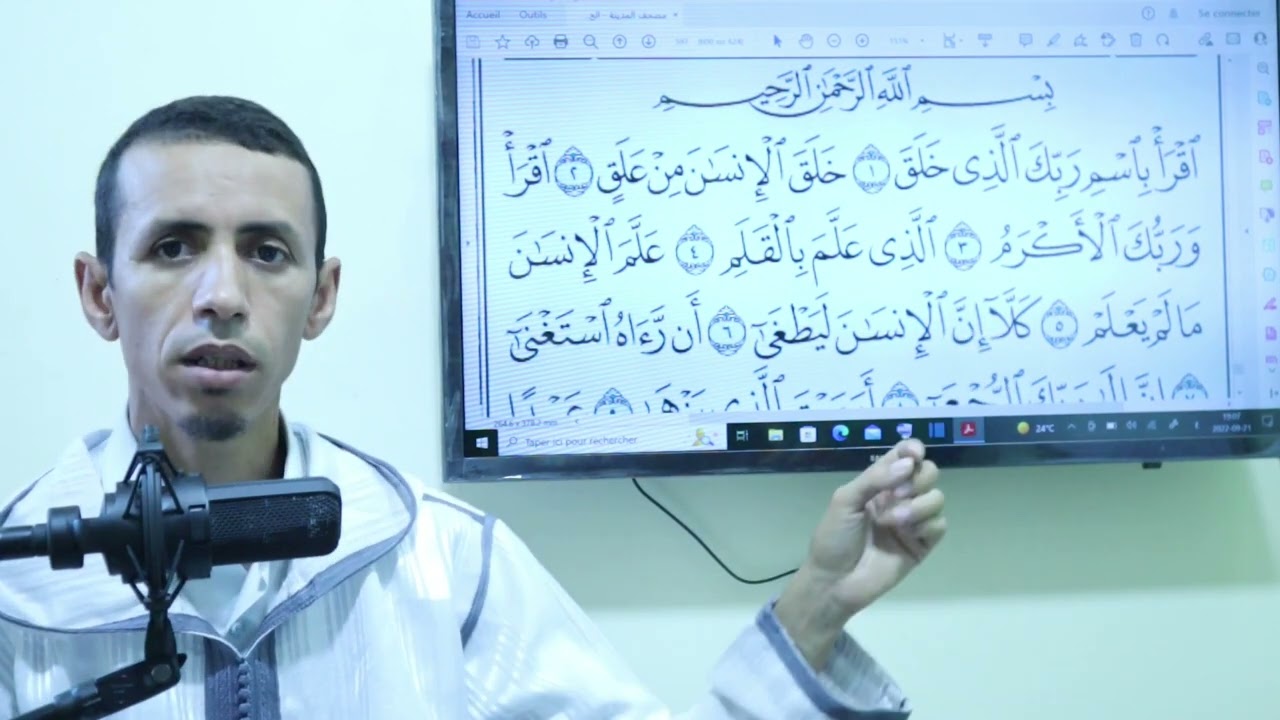 Accueil Outils مصحف المدينة - الج Se connecter
111%
بِسْمِ ٱللَّهِ ٱلرَّحْمَٰنِ ٱلرَّحِيمِ
ٱقْرَأْ بِٱسْمِ رَبِّكَ ٱلَّذِى خَلَقَ ١ خَلَقَ ٱلْإِنسَٰنَ مِنْ عَلَقٍ ٢ ٱقْرَأْ
وَرَبُّكَ ٱلْأَكْرَمُ ٣ ٱلَّذِى عَلَّمَ بِٱلْقَلَمِ ٤ عَلَّمَ ٱلْإِنسَٰنَ
مَا لَمْ يَعْلَمْ ٥ كَلَّآ إِنَّ ٱلْإِنسَٰنَ لَيَطْغَىٰٓ ٦ أَن رَّءَاهُ ٱسْتَغْنَىٰٓ
٧ إِنَّ إِلَىٰ رَبِّكَ ٱلرُّجْعَىٰٓ ٨ أَرَءَيْتَ ٱلَّذِى يَنْهَىٰ ٩ عَبْدًا
Taper ici pour rechercher 24°C 19:07
2022-09-21